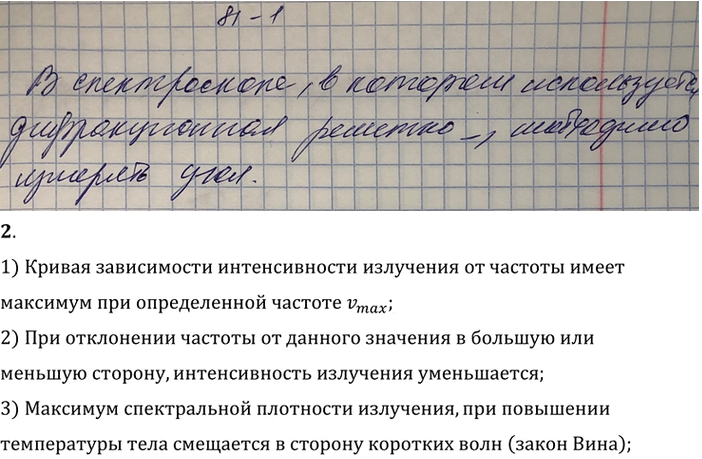 81-1
В спектроскопе, в котором используется
дифракционная решетка -, необходимо
измерять угол.
2.
1) Кривая зависимости интенсивности излучения от частоты имеет
максимум при определенной частоте v_max;
2) При отклонении частоты от данного значения в большую или
меньшую сторону, интенсивность излучения уменьшается;
3) Максимум спектральной плотности излучения, при повышении
температуры тела смещается в сторону коротких волн (закон Вина);